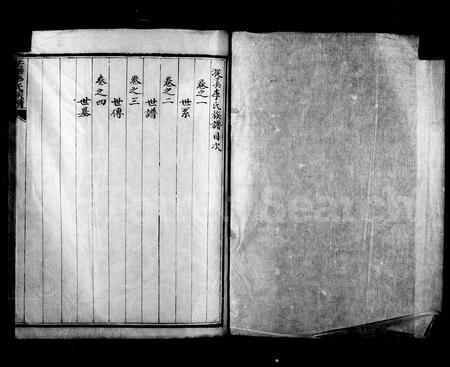 溪李氏族譜目次
卷之一
世系
卷之二
世譜
卷之三
世傳
卷之四
世墓
Search